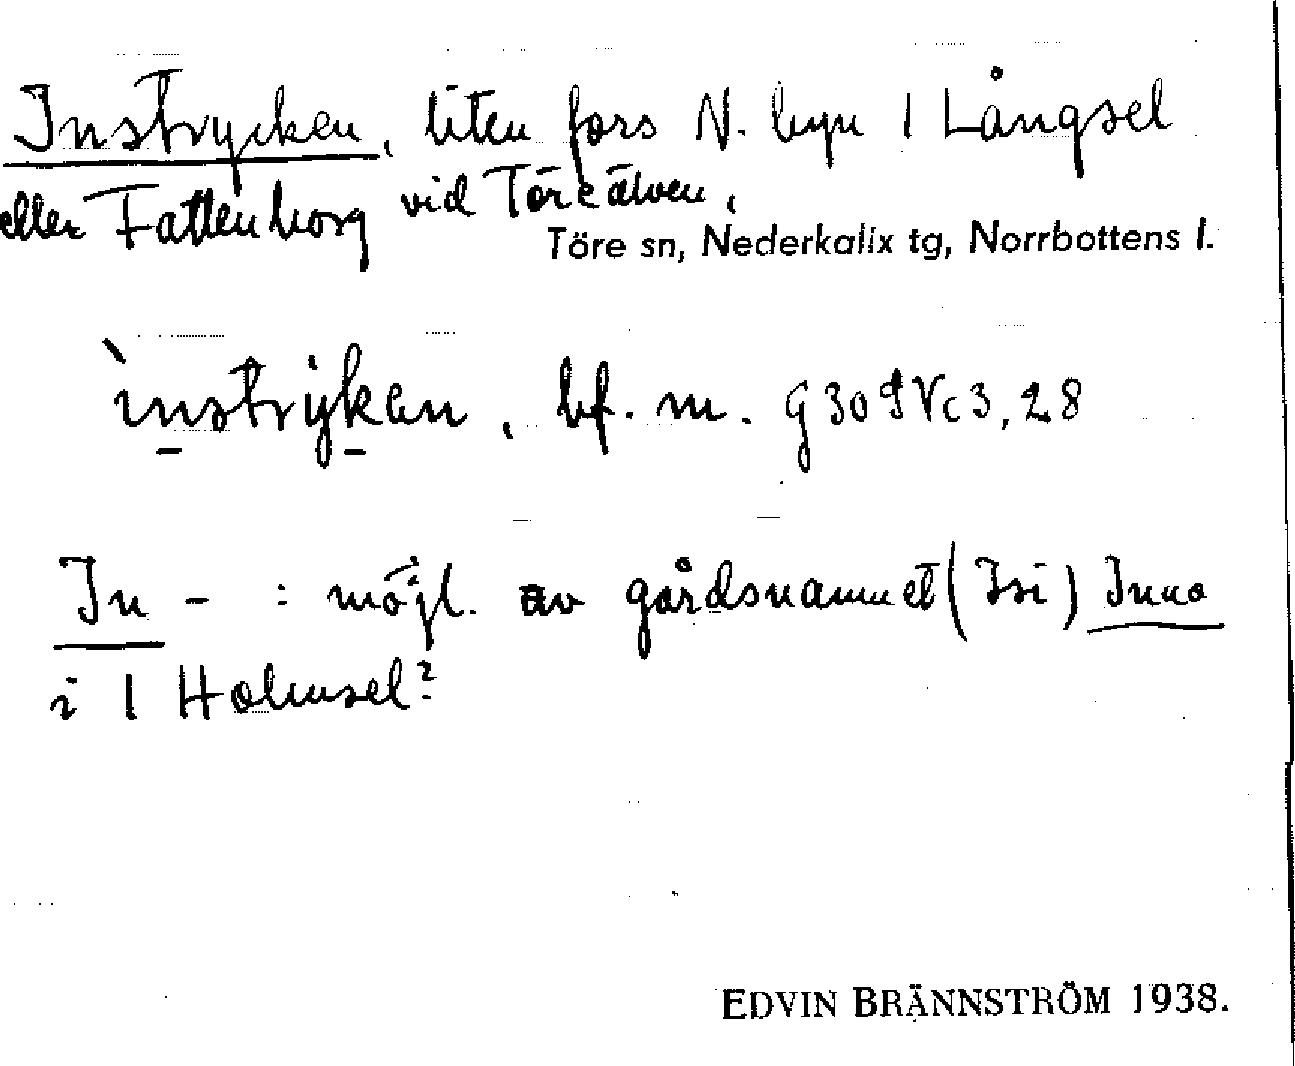 Instrycken, liten fors N. byn 1 Långsel
eller Fattenborg vid Töreälven.
Töre sn, Nederkalix tg, Norrbottens l.
ìnstrykan, bf. m. G 309 Vc 3, 28
In - : möjl. av gårdsnamnet (Isi) Inna
i 1 Holmsel?
EDVIN BRÄNNSTRÖM 1938.